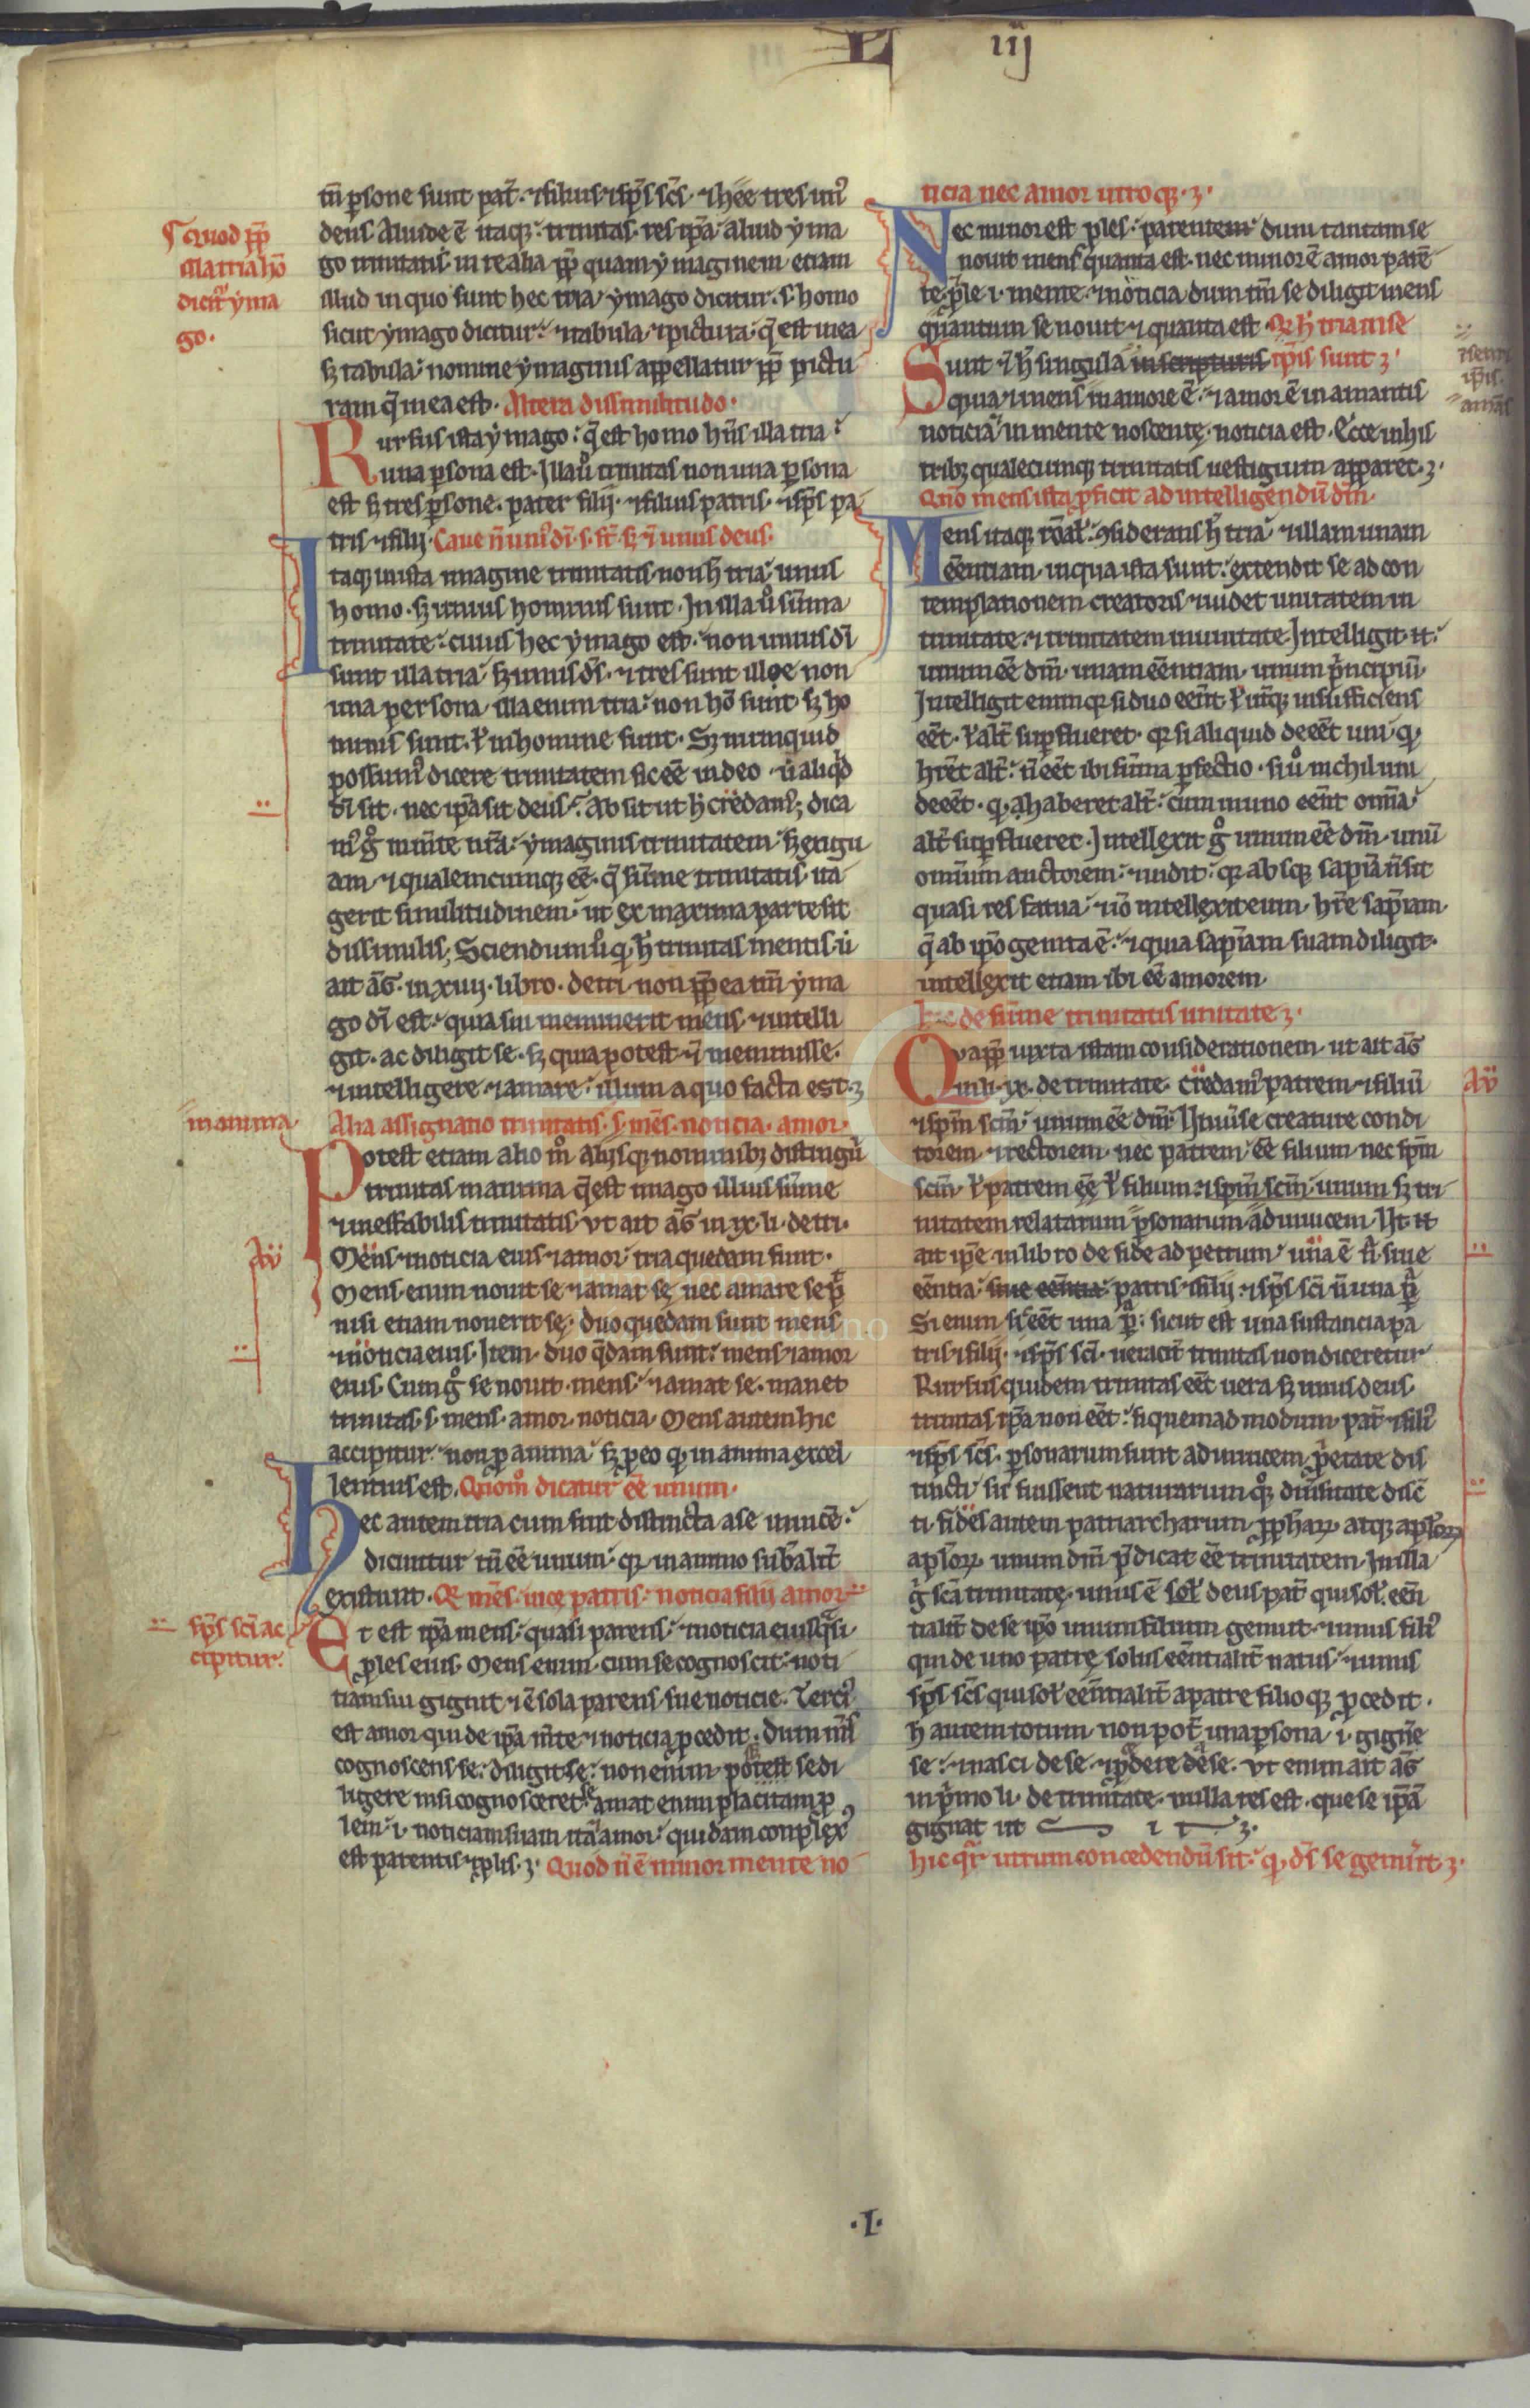 L iij
tm̄ ꝑsone sunt pat̄. ⁊ filius ⁊ sp̄s sc̄s. ⁊ hee tres unꝰ
deus. Aliud ē itaq; trinitas res ip̄a. aliud yma
go trinitatis in re alia. ꝓp̄ quam ymaginem etiam
illud in quo sunt hec tria ymago dicitur. s. homo
sicut ymago dicitur. ⁊ tabula ⁊ pictura. q̄ est in ea
sꝫ tabula nomine ymaginis appellatur ꝓp̄ pictu
ram q̄ in ea est. Altera dissimilitudo.
s. quod ꝓp̄
illa tria hō
dicit᷑ yma
go.
Rursus ista ymago. q̄ est homo hn̄s illa tria.
una ꝑsona est. Illa u̾o trinitas non una ꝑsona
est sꝫ tres ꝑsone. pater filij. ⁊ filius patris. ⁊ sp̄s pa
tris ⁊ filij. Caue n̄ uniꝰ dī. s. st̄. sꝫ ē unus deus.
Itaq; in ista imagine trinitatis. non h̄ tria unus
homo. sꝫ unius hominis sunt. In illa u̾o sūma
trinitate. cuius hec ymago est. non unius dī
sunt illa tria sꝫ unus ds̄. ⁊ tres sunt ille non
una persona. illa enim tria non hō sunt. sꝫ ho
minis sunt. ł in homine sunt. Sꝫ nunquid
possumꝰ dicere trinitatem sic eē in deo. ut aliqd
dī sit. nec ip̄a sit deus. Absit ut h̄ credamꝰ; dica
mꝰ gͦ in mēte nr̄a. ymaginis trinitatem. sꝫ exigu
am. ⁊ qualemcumq; eē. q̄ sūme trinitatis. ita
gerit similitudinem. ut ex maxima parte sit
dissimilis; Sciendum u̾o q; h̄ trinitas mentis. ut
ait aḡ. in xiiij. libro. de tri. non ꝓp̄ea tm̄ yma
go dī est. quia sui meminerit mens. ⁊ intelli
git. ac diligit se. sꝫ quia potest ⁊ meminisse.
⁊ intelligere. ⁊ amare. illum a quo facta est. ʒ
in anima.
Alia assignatio trinitatis. s. mēs. noticia. amor.
Potest etiam alio mͦ. alijsq; nominibꝫ distingui
trinitas in anima q̄ est imago illius sūme
⁊ ineffabilis trinitatis. ut ait aḡ in ix. li. de tri.
AV
Mens ⁊ noticia eius ⁊ amor. tria quedam sunt.
Mens enim nouit se. ⁊ amat se. nec amare se p̄t
nisi etiam nouerit se. duo quedam sunt mens
⁊ noticia eius. Item. duo q̄dam sunt. mens ⁊ amor
eius. Cum gͦ se nouit mens. ⁊ amat se. manet
trinitas. s. mens. amor. noticia. Mens autem hic
accipitur non ꝓ anima. sꝫ ꝓ eo q; in anima excel
lentius est. Quomͦ dicatur eē unum.
Hec autem tria cum sint distincta a se inuicē.
dicuntur tn̄ eē unum. qꝛ in animo substālit̄
existunt. Qꝛ mēs. uice patris. noticia filij amor
sp̄s sc̄i ac
cipitur.
Et est ip̄a mens. quasi parens. ⁊ noticia eius q̄si
ꝓles eius. Mens enim. cum se cognoscit. noti
tiam sui gignit. ⁊ ē sola parens. sue noticie. Terciꝰ
est amor qui de ip̄a mēte ⁊ noticia ꝓcedit. dum mēs
cognoscens se. diligit se. non enim potest se di
ligere nisi cognosceret se. amat enim placitam ꝓ
lem. i. noticiam suam. ita amor quidam conplexꝰ
est parentis ⁊ ꝓlis. ʒ. Quod n̄ ē minor mente no
ticia nec amor utroq;. ʒ.
Nec minor est ꝓles. parentem dum tantam se
nouit mens quanta est. nec minor ē amor parē
te. ꝓle. i. mente ⁊ noticia. dum tm̄ se diligit mens
quantum se nouit ⁊ quanta est. Qꝛ h̄ tria in se
Sunt ⁊ h̄ singula in scripturis ip̄is sunt ʒ.
quia ⁊ mens in amore ē. ⁊ amor ē in amantis
noticia. in mente noscente. noticia est. Ecce in his
tribꝫ qualecumq; trinitatis uestigium apparet. ʒ.
Quō mens ista ꝓficit ad intelligendū dm̄.
Mens itaq; rōal̄. ꝯsiderans h̄ tria. ⁊ illam unam
eēntiam. in qua ista sunt. extendit se ad con
templationem creatoris. ⁊ uidet unitatem in
trinitate. ⁊ trinitatem in unitate. Intelligit .n.
unum eē dm̄. unam eēntiam. unum p̄ncipiū.
Intelligit enim qꝛ si duo eēnt ł ut̄q; insufficiens
eēt. ł alt̄ suꝑflueret. qꝛ si aliquid deeēt uni. q;
hr̄et alt̄. n̄ eēt ibi sūma ꝑfectio. si u̾o nichil uni
deeēt. q; haberet alt̄. cum in uno eēnt omīa.
alt̄ suꝑflueret. Intellexit gͦ unum eē dm̄. unū
omium auctorem. ⁊ uidit. qꝛ absq; sapīa n̄ sit
quasi res fatua. ⁊ iō intellexit eum. hr̄e sapīam
q̄ ab ip̄o genita ē. ⁊ quia sapīam suam diligit.
intellexit etiam ibi eē amorem.
hic de sūme trinitatis unitate ʒ.
Qvap̄ iuxta istam considerationem. ut ait aḡ
AV
in li. ix. de trinitate. Credamꝰ patrem. ⁊ filiū
⁊ sp̄m sc̄m. unum eē dm̄. uniuīse creature condi
torem. ⁊ rectorem. nec patrem eē filium. nec sp̄m
sc̄m. ł patrem eē ł filium. ⁊ sp̄m sc̄m. unum sꝫ tri
nitatem relatarum ꝑsonarum ad inuicem. Ut .n.
ait ip̄e. in libro de fide ad petrum. una ē n̄. siue
eēntia. siue eēntia. patris ⁊ filij. ⁊ sp̄s sc̄i. n̄ una ꝑ̄
Si enim sic eēt una ꝑ̄. sicut est una sustancia pa
tris ⁊ filij. ⁊ sp̄s sc̄i. ueracit̄ trinitas non diceretur
Rursus quidem trinitas eēt uera. sꝫ unus deus.
trinitas ip̄a non eēt. si quemadmodum. pat̄ ⁊ filiꝰ
⁊ sp̄s sc̄s. ꝑsonarum sunt ad inuicem ꝓprietate dis
tincti. sic fuissent naturarum qͦꝫ diūsitate disc̄
ti. fides autem patriarcharum ꝓp̄harꝫ. atq; apl̄orꝫ
apl̄orꝫ. unum dm̄ p̄dicat eē trinitatem. In illa
gͥ sc̄a trinitate. unus ē sol̾. deus pat̄ qui sol̾. eēn
tialit̄ de se ip̄o unum filium genuit. ⁊ unus filiꝰ
qui de uno patre solus eēntialit̄ natus. ⁊ unus
sp̄s sc̄s qui sol̾ eēntialit̄ a patre filioq; ꝓcedit.
h̄ autem totum. non pot̄. una ꝑsona. i. gignē
se. ⁊ nasci de se. ⁊ ꝓcedere de se. ut enim ait aḡ
in p̄mo li. de trinitate. nulla res est. que se ip̄ā
gignat ut
hic qr̄. utrum concedendū sit. q; ds̄ se genuīt. ʒ.
.I.